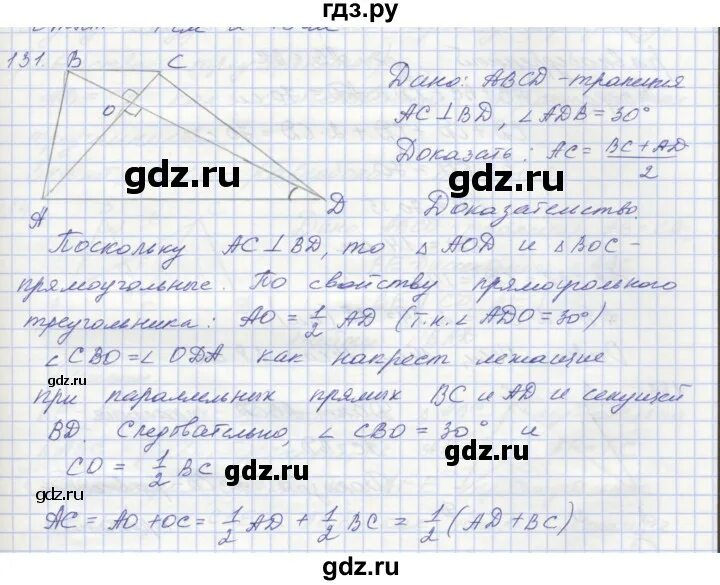 гдз.ру
131. B C
Дано: ABCD - трапеция
O
AC ⊥ BD, ∠ ADB = 30°
Доказать: AC = BC + AD / 2
gdz.ru gdz.ru
A D Доказательство.
Поскольку AC ⊥ BD, то △ AOD и △ BOC -
прямоугольные. По свойству прямоугольного
треугольника: AO = 1/2 AD (т.к. ∠ ADO = 30°)
∠ CBO = ∠ ODA как накрест лежащие
gdz.ru
при параллельных прямых BC и AD и секущей
BD. Следовательно, ∠ CBO = 30° и
CO = 1/2 BC
gdz.ru gdz.ru gdz.ru
AC = AO + OC = 1/2 AD + 1/2 BC = 1/2 (AD + BC)
gdz.ru